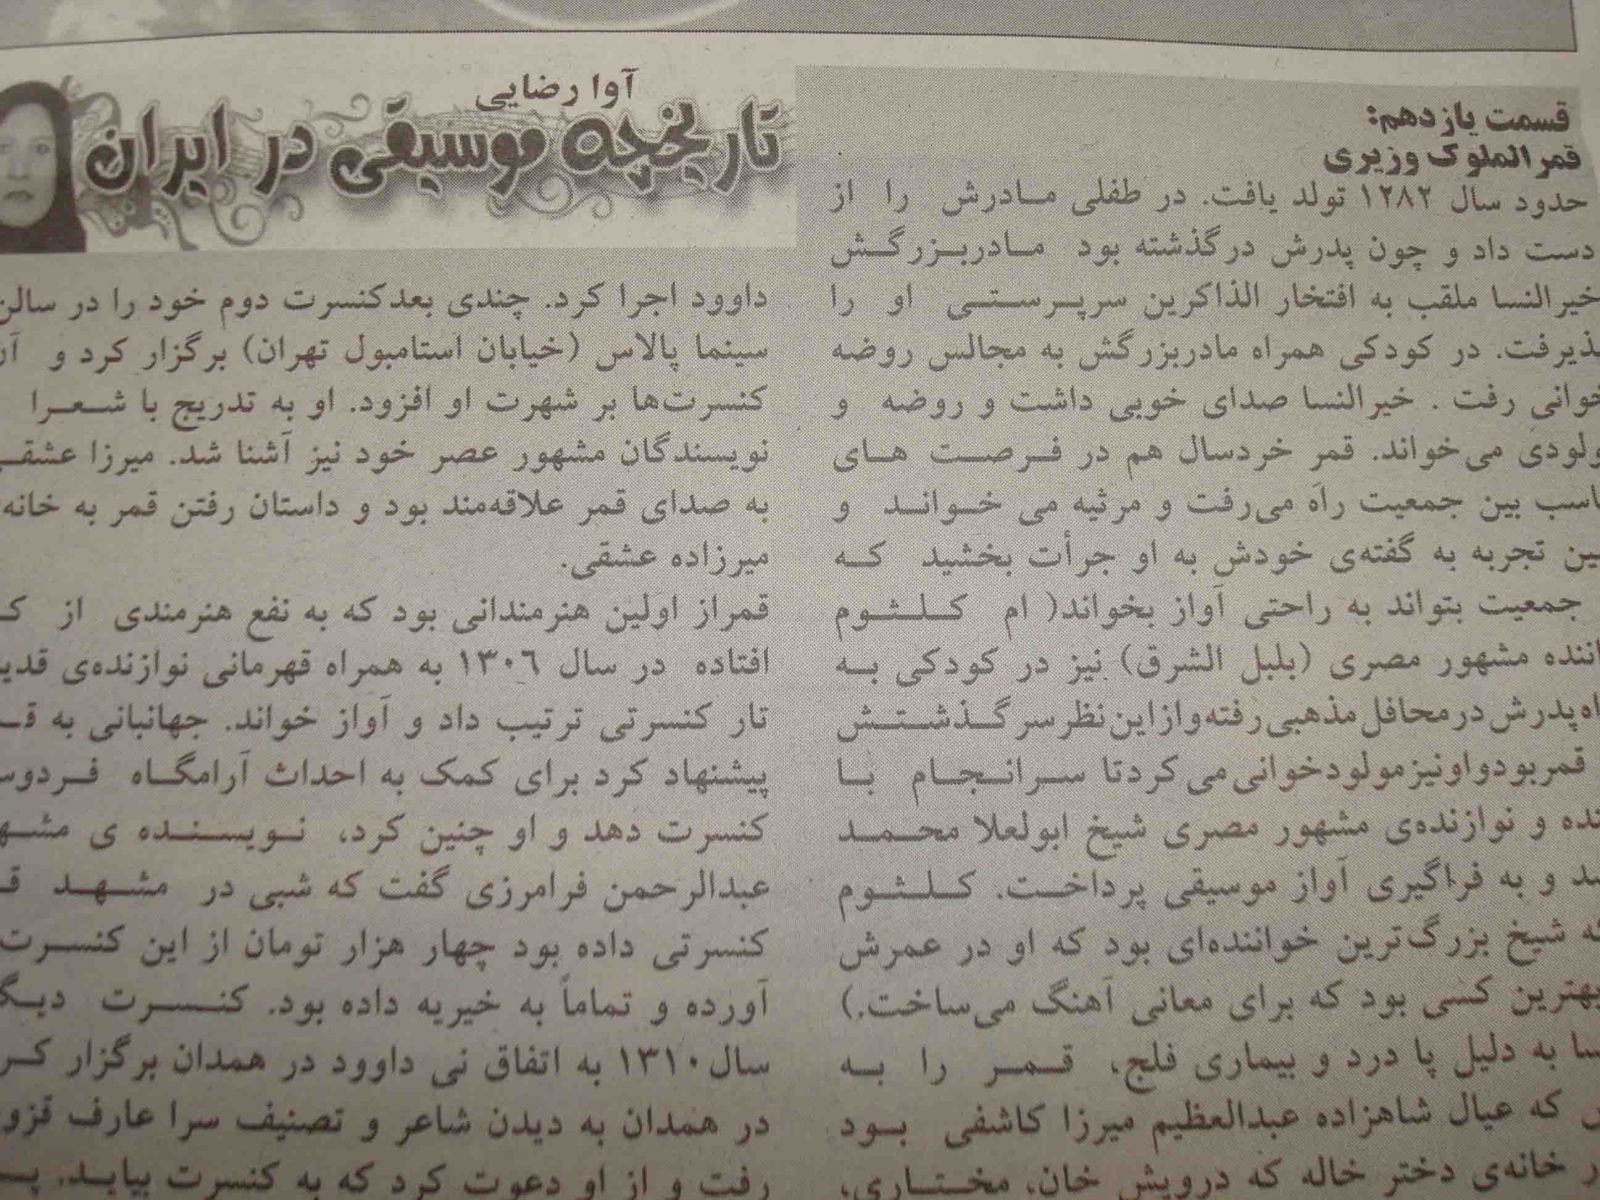 آوا رضایی
تاریخچه موسیقی در ایران
قسمت یازدهم:
قمرالملوک وزیری
حدود سال ۱۲۸۲ تولد یافت. در طفلی مادرش را از
دست داد و چون پدرش درگذشته بود مادربزرگش
خیرالنسا ملقب به افتخار الذاکرین سرپرستی او را
پذیرفت. در کودکی همراه مادربزرگش به مجالس روضه
خوانی رفت . خیرالنسا صدای خوبی داشت و روضه و
مولودی می‌خواند. قمر خردسال هم در فرصت های
بین جمعیت راه می‌رفت و مرثیه می خواند و
تجربه به گفته‌ی خودش به او جرأت بخشید که
جمعیت بتواند به راحتی آواز بخواند( ام کلثوم
مشهور مصری (بلبل الشرق) نیز در کودکی به
پدرش در محافل مذهبی رفته و از این نظر سرگذشتش
قمر بود و او نیز مولودخوانی می کرد تا سرانجام با
و نوازنده‌ی مشهور مصری شیخ ابولعلا محمد
و به فراگیری آواز موسیقی پرداخت. کلثوم
شیخ بزرگ‌ترین خواننده‌ای بود که او در عمرش
بهترین کسی بود که برای معانی آهنگ می‌ساخت.)
به دلیل پا درد و بیماری فلج، قمر را به
که عیال شاهزاده عبدالعظیم میرزا کاشفی بود
خانه‌ی دختر خاله که درویش خان، مختاری،
داوود اجرا کرد. چندی بعدکنسرت دوم خود را در سالن
سینما پالاس (خیابان استامبول تهران) برگزار کرد و
کنسرت‌ها بر شهرت او افزود. او به تدریج با شعرا
نویسندگان مشهور عصر خود نیز آشنا شد. میرزا عشقی
به صدای قمر علاقه‌مند بود و داستان رفتن قمر به خانه
میرزاده عشقی.
قمراز اولین هنرمندانی بود که به نفع هنرمندی از
افتاده در سال ۱۳۰۶ به همراه قهرمانی نوازنده‌ی
تار کنسرتی ترتیب داد و آواز خواند. جهانبانی به
پیشنهاد کرد برای کمک به احداث آرامگاه
کنسرت دهد و او چنین کرد، نویسنده ی
عبدالرحمن فرامرزی گفت که شبی در مشهد
کنسرتی داده بود چهار هزار تومان از این کنسرت
آورده و تماماً به خیریه داده بود. کنسرت
سال۱۳۱۰ به اتفاق نی داوود در همدان برگزار
در همدان به دیدن شاعر و تصنیف سرا عارف
رفت و از او دعوت کرد که به کنسرت بیاید.